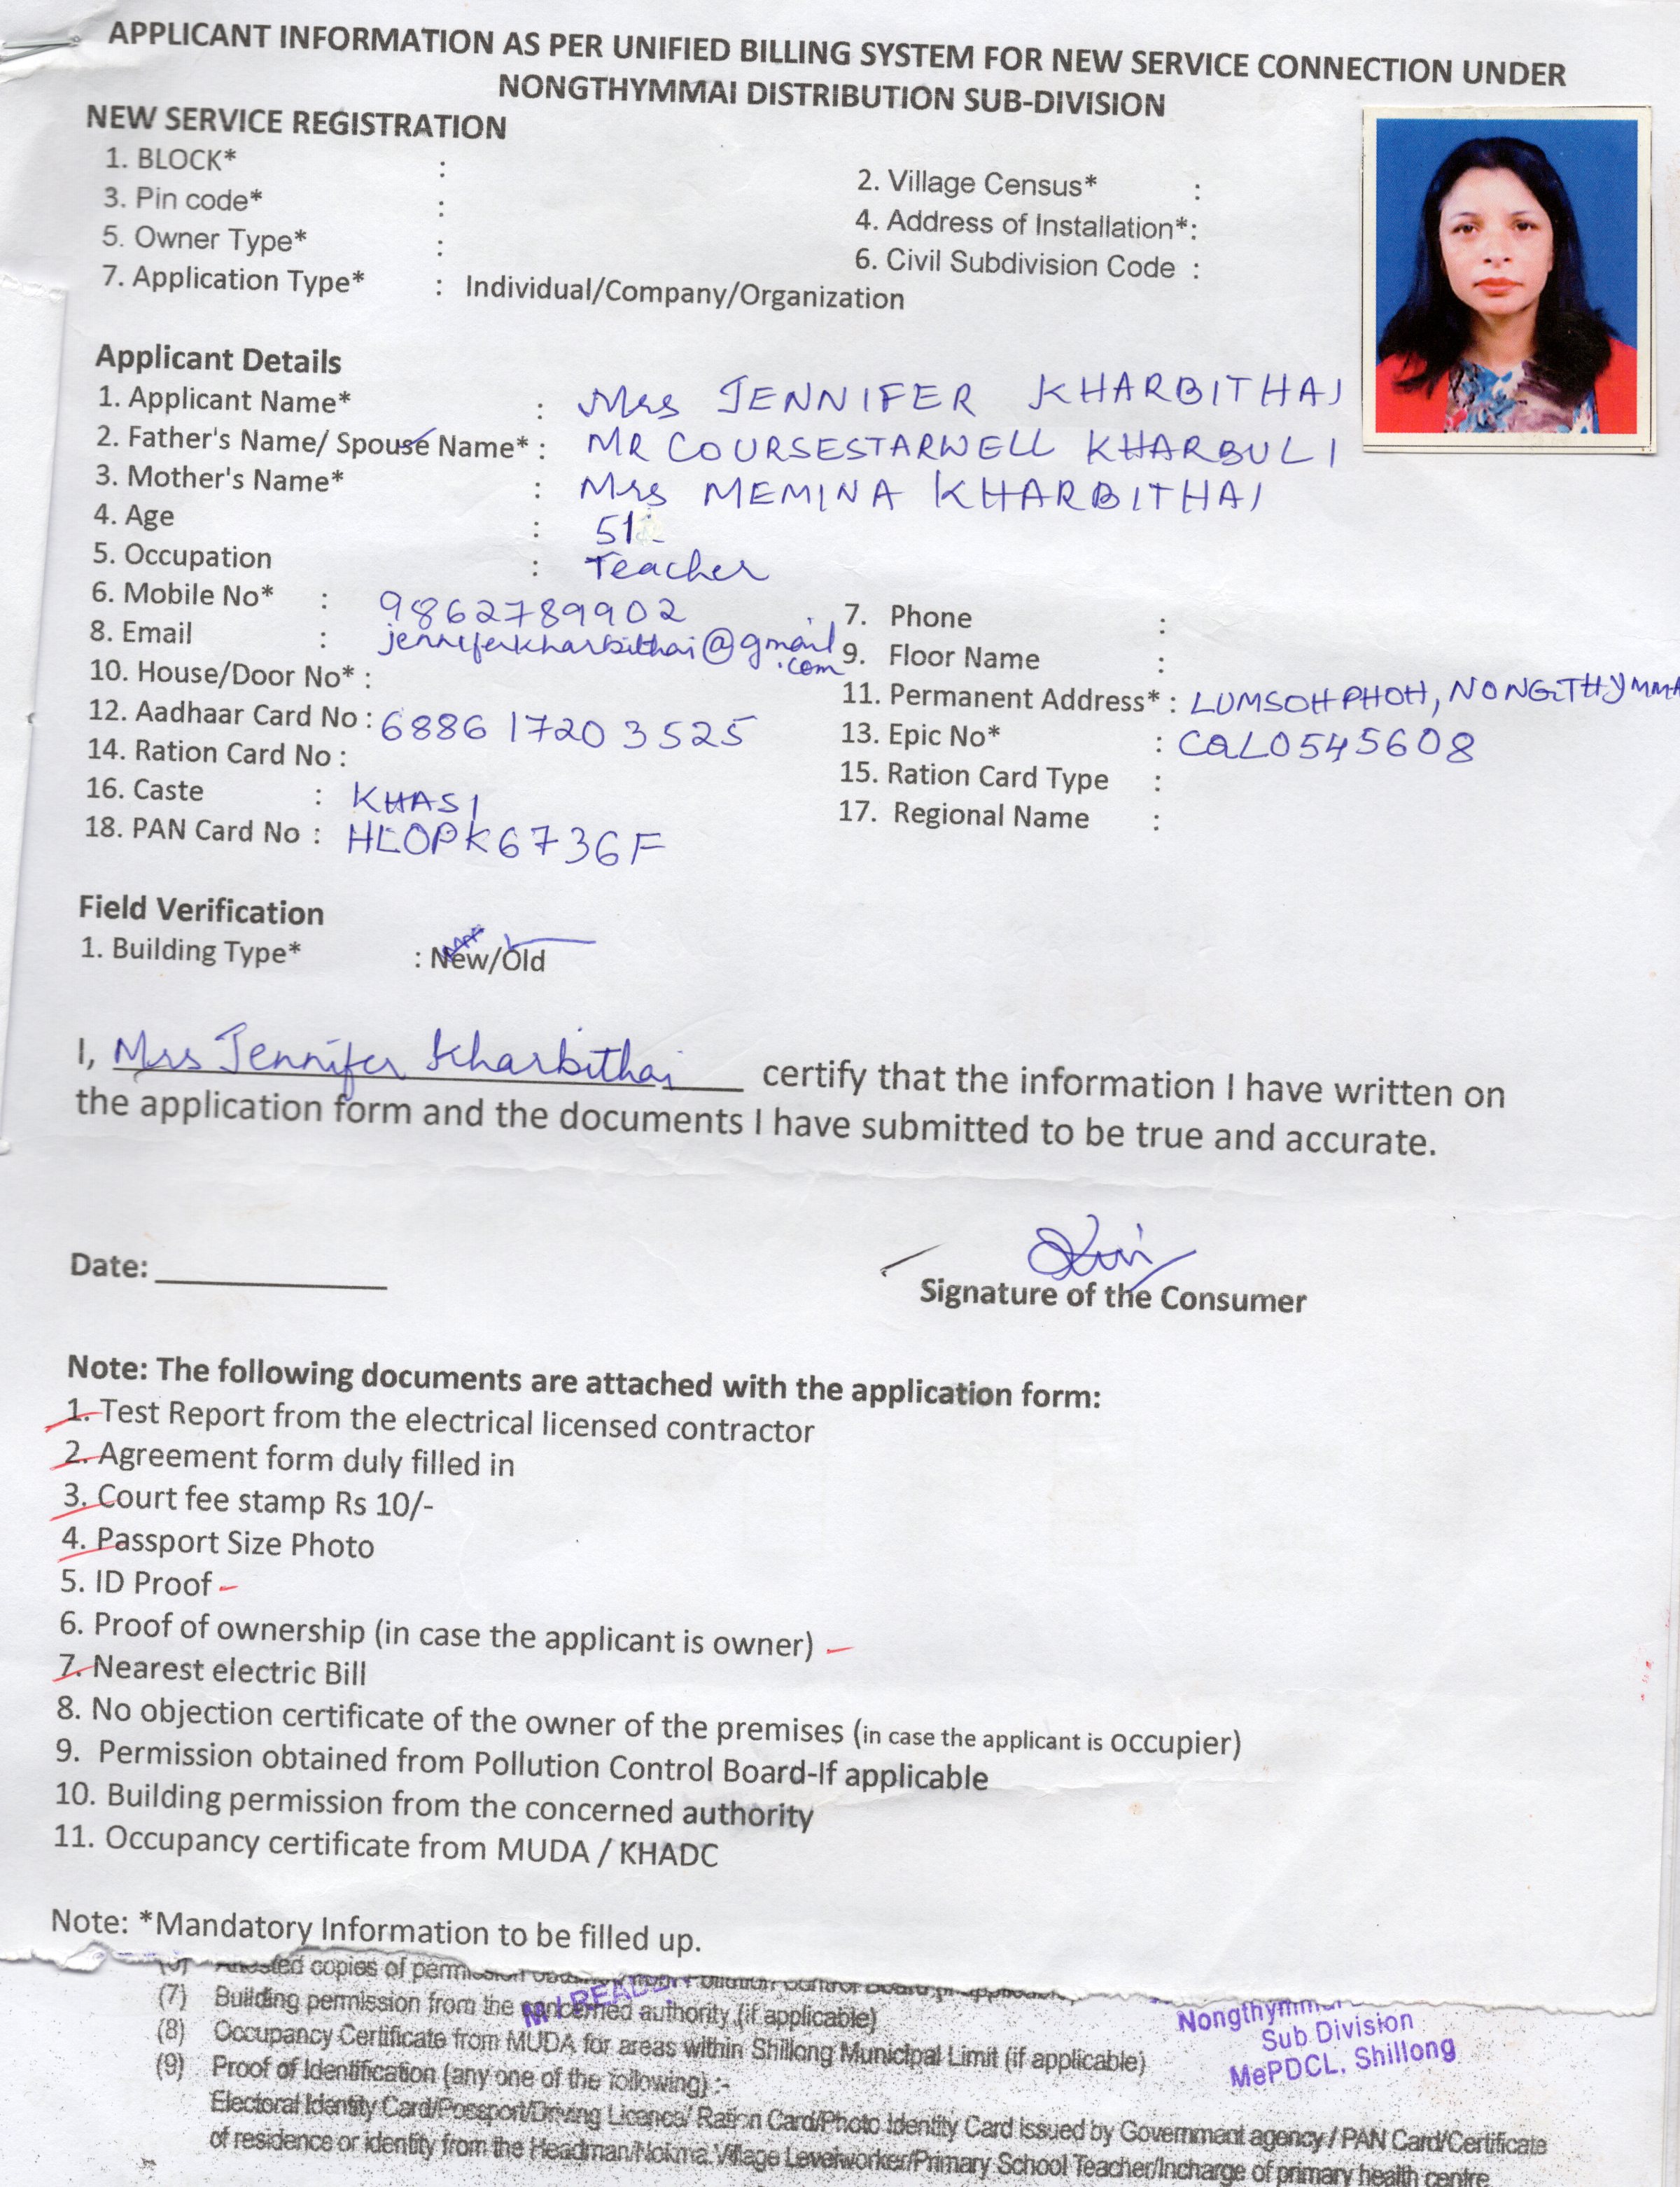 APPLICANT INFORMATION AS PER UNIFIED BILLING SYSTEM FOR NEW SERVICE CONNECTION UNDER
NONGTHYMMAI DISTRIBUTION SUB-DIVISION
NEW SERVICE REGISTRATION
1. BLOCK* :
2. Village Census* :
3. Pin code* :
4. Address of Installation*:
5. Owner Type* :
6. Civil Subdivision Code :
7. Application Type* : Individual/Company/Organization
Applicant Details
1. Applicant Name* : Mrs JENNIFER KHARBITHAI
2. Father's Name/ Spouse Name* : MR COURSESTARWELL KHARBULI
3. Mother's Name* : Mrs MEMINA KHARBITHAI
4. Age : 51
5. Occupation : Teacher
6. Mobile No* : 9862789902
7. Phone :
8. Email : jenniferkharbithai@gmail.com
9. Floor Name :
10. House/Door No* :
11. Permanent Address* : LUMSOHPHOH, NONGTHYMMA
12. Aadhaar Card No : 6886 1720 3525
13. Epic No* : CQL0545608
14. Ration Card No :
15. Ration Card Type :
16. Caste : KHASI
17. Regional Name :
18. PAN Card No : HLOPK6736F
Field Verification
1. Building Type* : New/Old
I, Mrs Jennifer Kharbithai certify that the information I have written on
the application form and the documents I have submitted to be true and accurate.
Date:
Signature of the Consumer
Note: The following documents are attached with the application form:
1. Test Report from the electrical licensed contractor
2. Agreement form duly filled in
3. Court fee stamp Rs 10/-
4. Passport Size Photo
5. ID Proof
6. Proof of ownership (in case the applicant is owner)
7. Nearest electric Bill
8. No objection certificate of the owner of the premises (in case the applicant is occupier)
9. Permission obtained from Pollution Control Board-If applicable
10. Building permission from the concerned authority
11. Occupancy certificate from MUDA / KHADC
Note: *Mandatory Information to be filled up.
copies of
(7) Building permission from the concerned authority (if applicable)
(8) Occupancy Certificate from MUDA for areas within Shillong Municipal Limit (if applicable)
(9) Proof of Identification (any one of the following) :-
Electoral Identity Card/Possport/Driving Licence/ Ration Card/Photo Identity Card issued by Government agency / PAN Card/Certificate
of residence or identity from the Headman/Nokma. Village Levelworker/Primary School Teacher/Incharge of primary health centre
Sub Division
MePDCL, Shillong